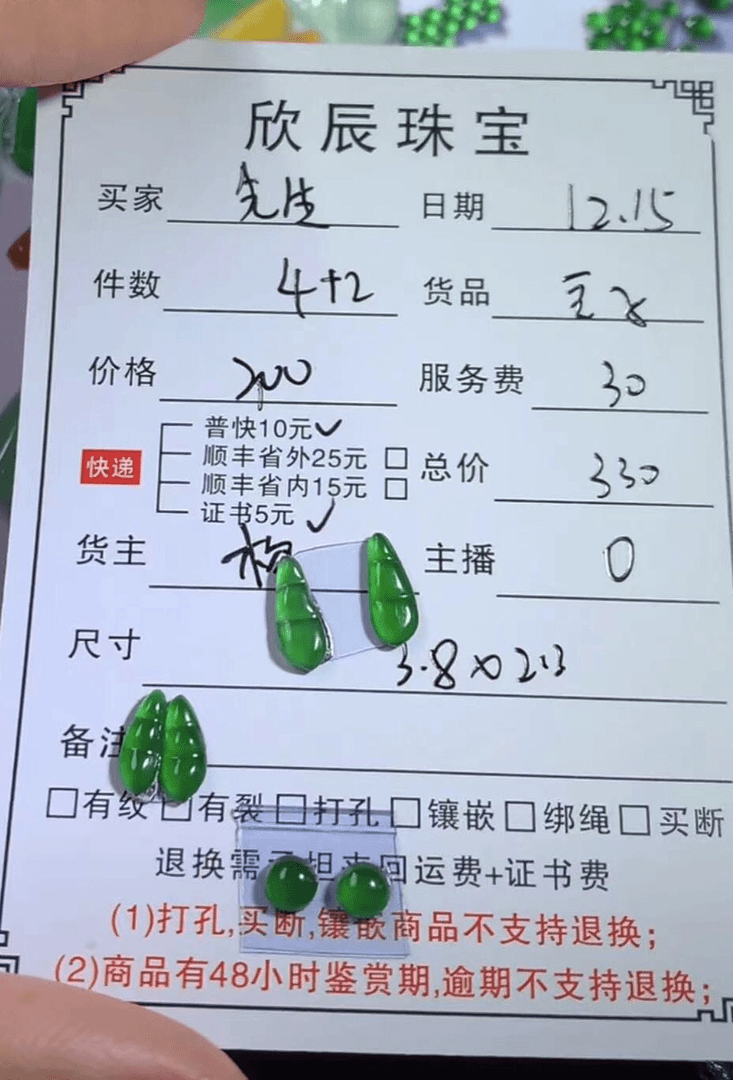 欣辰珠宝
买家 先生 日期 12.15
件数 4+2 货品
价格 服务费 30
快递 普快10元✓
顺丰省外25元 □
顺丰省内15元 □
证书5元 ✓
总价 330
货主 杨 主播 0
尺寸 3.8×2.13
备注
□有纹 □有裂 □打孔 □镶嵌 □绑绳 □买断
退换需承担来回运费+证书费
(1)打孔,买断,镶嵌商品不支持退换;
(2)商品有48小时鉴赏期,逾期不支持退换;